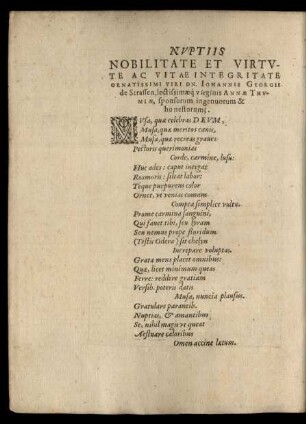 NVPTIIS
NOBILITATE ET VIRTV-
TE AC VITAE INTEGRITATE
ORNATISSIMI VIRI DN. IOHANNIS GEORGII
de Scrassen, lectissimæq́; virginis ANNÆ THV-
MIN, sponsorum ingenuorum &
honestorumq́;
MVsa, quæ celebras DEKVM,
Musa, quæ meritos canis,
Musa, quæ recreas graues
Pectoris querimonias
Corde, carmine, lusu:
Huc ades: caput integat
Rosmoris: sileat labor:
Teque purpureus calor
Ornet, et venias comam
Compta simplice vultu.
Prome carmina sanguini,
Qui fauet tibi, seu lyram
Seu nemus prope floridum
(Testis Odera) sit chelyn
Increpare voluptas.
Grata mens placet omnibus:
Quæ, licet minimum queas
Ferre: reddere gratiam
Versib. poteris datis
Musa, nuncia plausus.
Gratulare parantib.
Nuptias, & amantibus
Se, nihil magis vt queat
Aestuare caloribus
Omen accine lætum.